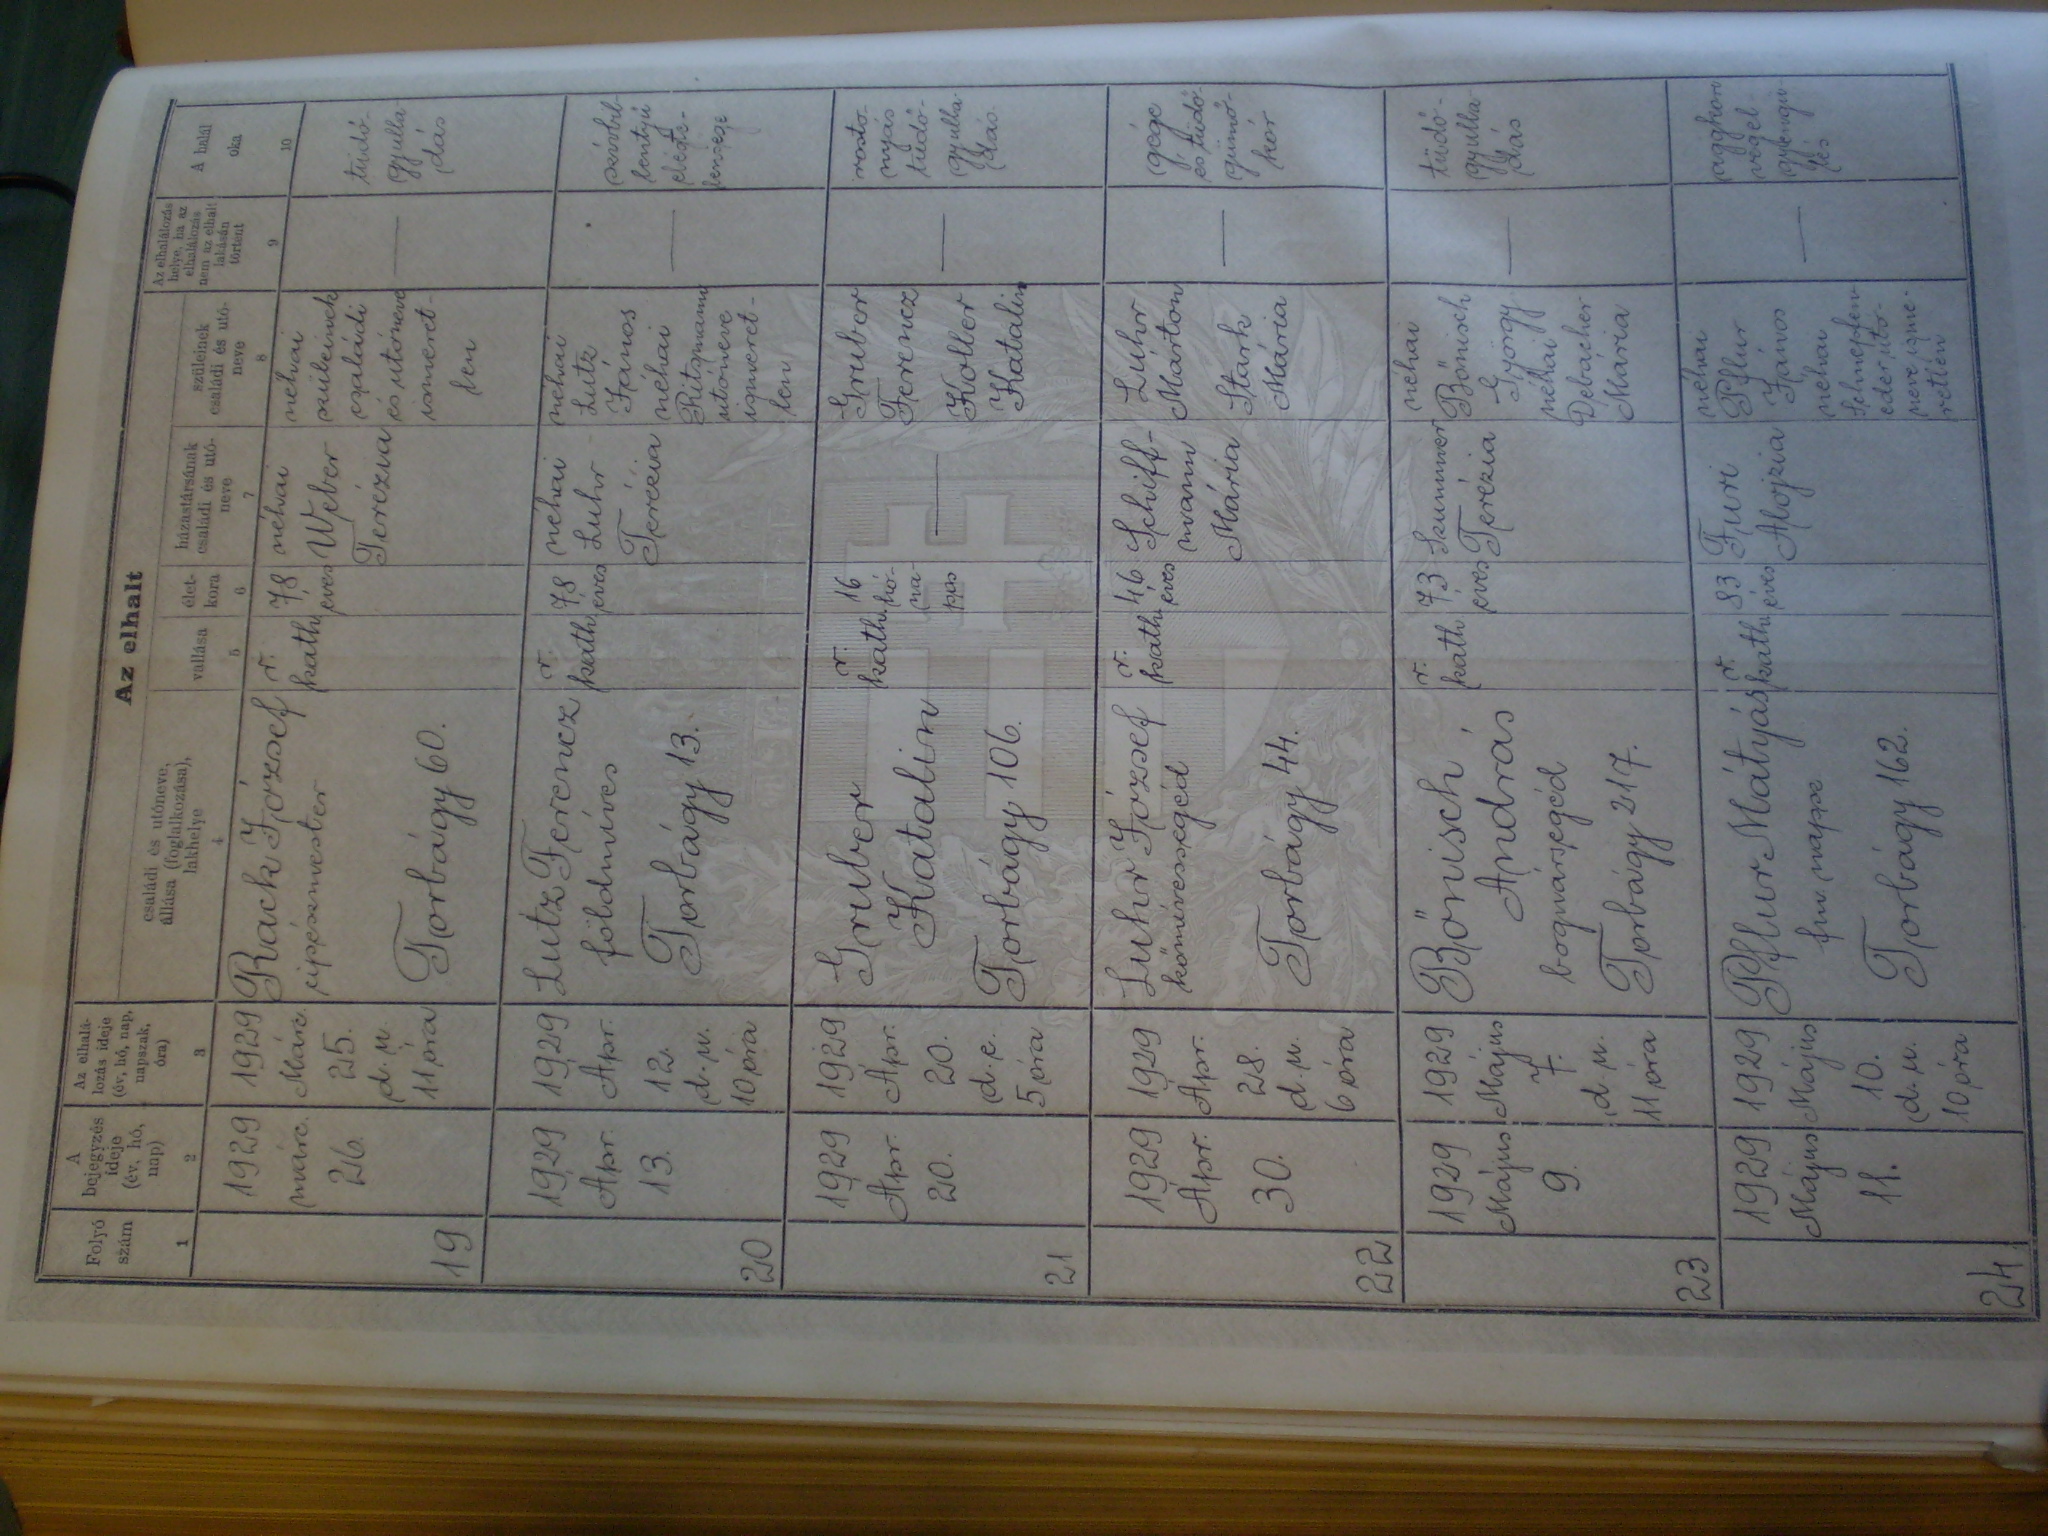 Az elhalt
Folyó
szám
A
bejegyzés
ideje
(év, hó,
nap)
Az elhalá-
lozás ideje
(év, hó, nap,
napszak,
óra)
családi és utóneve,
állása (foglalkozása),
lakhelye
vallása
élet-
kora
házastársának
családi és utó-
neve
szüleinek
családi és utó-
neve
Az elhalálozás
helye, ha az
elhalálozás
nem az elhalt
lakásán
történt
A halál
oka
1
2
3
4
5
6
7
8
9
10
19
1929
márc.
26.
1929
Márc.
25.
d. u.
11 óra
Rack József
cipészmester
Torbágy 60.
r.
kath
78
éves
néhai
Weber
Terézia
néhai
szüleinek
családi
és utóneve
ismeret-
len
—
tüdő-
gyulla-
dás
20
1929
Apr.
13.
1929
Apr.
12.
d. u.
10 óra
Lutz Ferencz
földmíves
Torbágy 13.
r.
kath
78
éves
néhai
Luhr
Terézia
néhai
Lutz
János
néhai
Ritzmann
utóneve
ismeret-
len
—
szívbil-
lentyű
elégte-
lensége
21
1929
Apr.
20.
1929
Apr.
20.
d. e.
5 óra
Gruber
Katalin
Torbágy 106.
r.
kath
16
hó-
na-
pos
—
Gruber
Ferencz
Koller
Katalin
—
rosto-
nyás
tüdő-
gyulla-
dás.
22
1929
Apr.
30.
1929
Apr.
28.
d. u.
6 óra
Luhr József
kőmívessegéd
Torbágy 44.
r.
kath
46
éves
Schiff-
mann
Mária
Luhr
Márton
Stark
Mária
—
gége
és tüdő-
gümő-
kór
23
1929
Május
9.
1929
Május
7.
d. u.
11 óra
Bönisch
András
bognársegéd
Torbágy 217.
r.
kath
73
éves
Szummer
Terézia
néhai
Bönisch
György
néhai
Debácher
Mária
—
tüdő-
gyulla-
dás
24.
1929
Május
11.
1929
Május
10.
d. u.
10 óra
Pflur Mátyás
Torbágy 162.
r.
kath
83
éves
Furi
Alojzia
néhai
Pflur
János
néhai
utó-
neve isme-
retlen
—
aggkori
végel-
gyengü-
lés